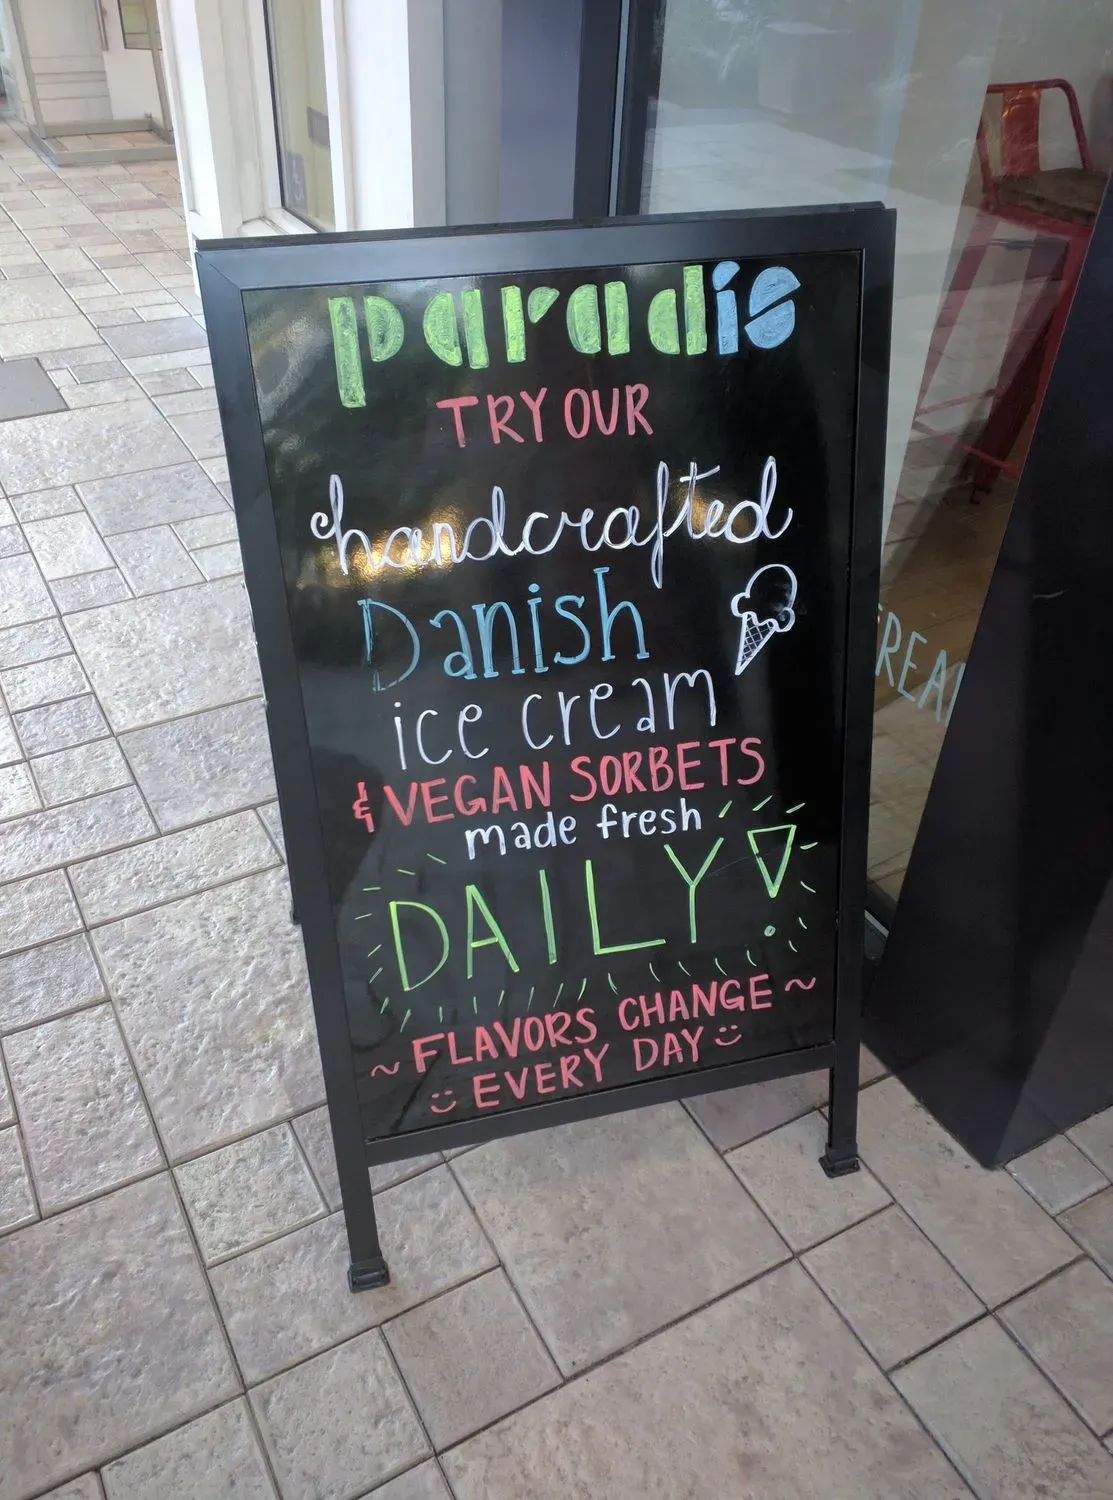 paradis
TRY OUR
handcrafted
Danish
ice cream
& VEGAN SORBETS
made fresh
DAILY!
~ FLAVORS CHANGE ~
EVERY DAY